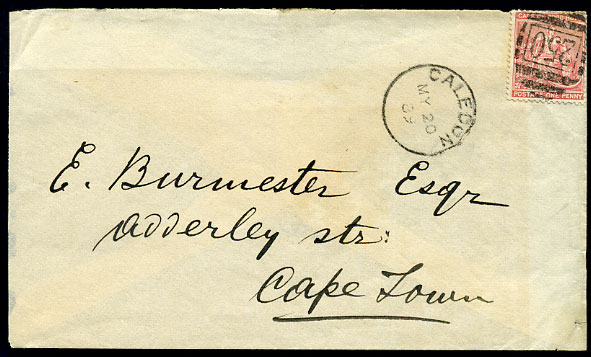 CALEDON
MY 20
89
250
POSTAGE ONE PENNY
E. Burmester Esqr
Adderley str:
Cape Town